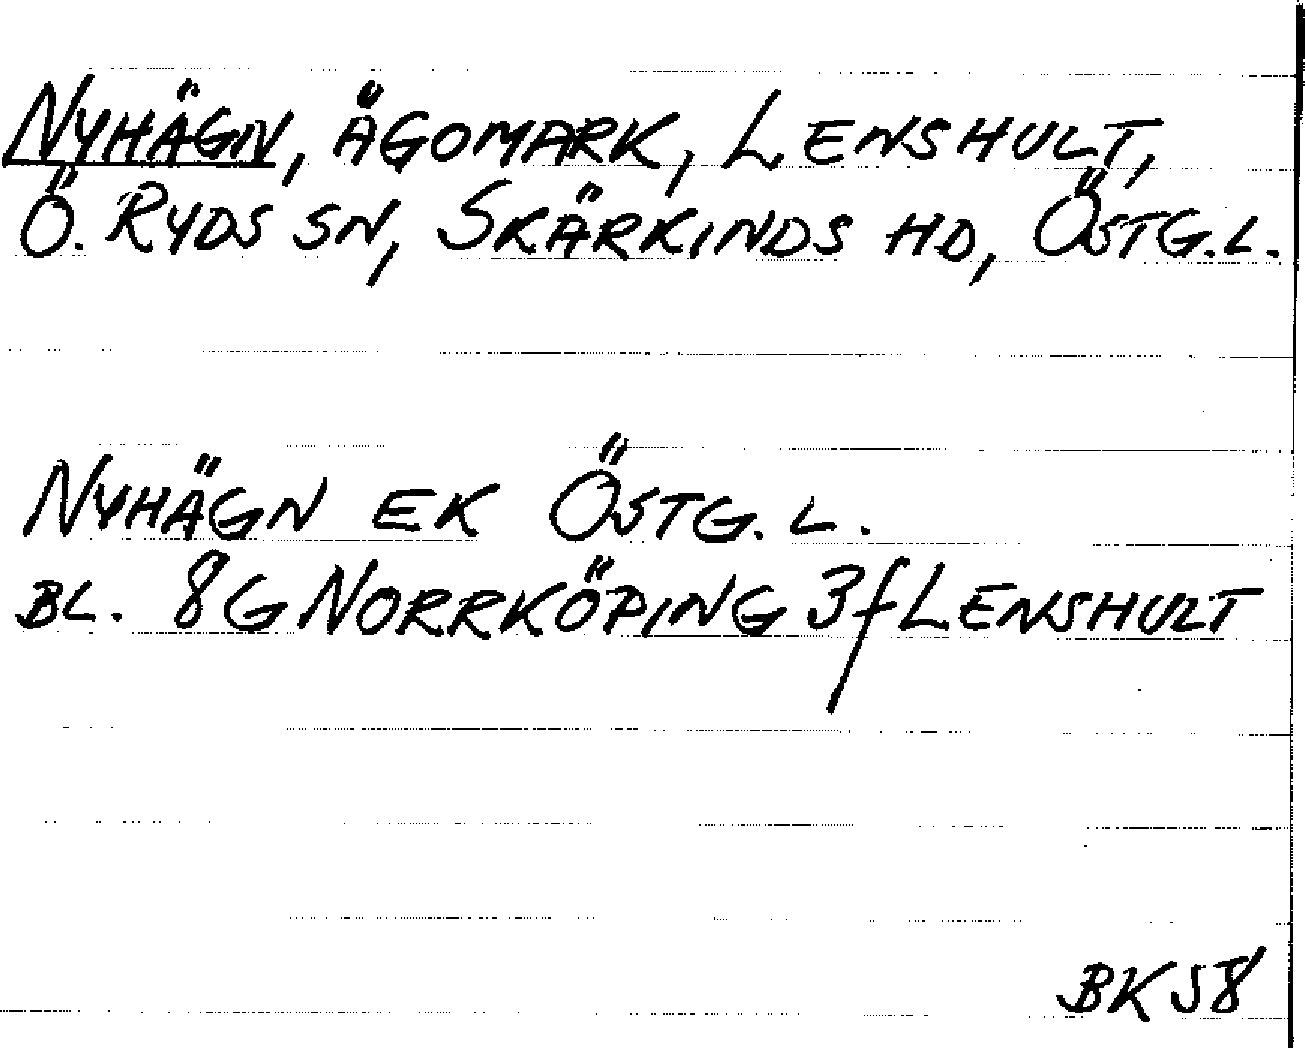 NYHÄGN, ÄGOMARK, LENSHULT,
Ö. RYDS SN, SKÄRKINDS HD, ÖSTG.L.
NYHÄGN EK ÖSTG.L.
BL. 8G NORRKÖPING 3f LENSHULT
BK 58